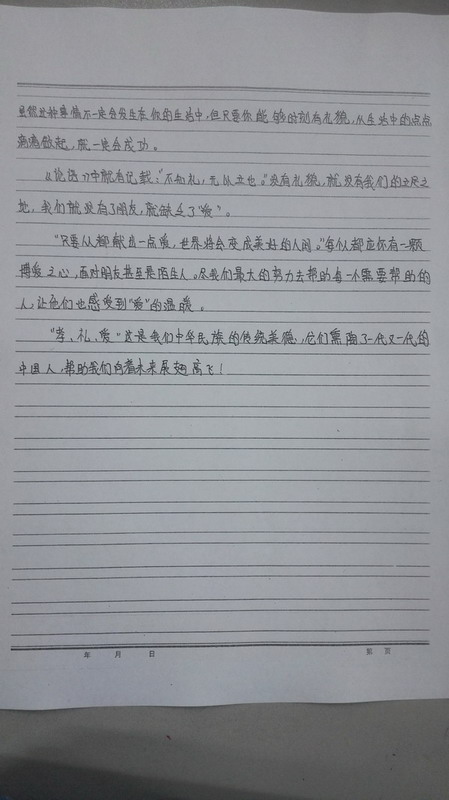 虽然这种事情不一定会发生在你的生活中，但只要你能够时刻有礼貌，从生活中的点点
滴滴做起，就一定会成功。
《论语》中就有记载："不知礼，无以立也。"没有礼貌，就没有我们的立足之
地，我们就没有了朋友，就缺乏了"爱"。
"只要人人都献出一点爱，世界将会变成美好的人间。"每个人都应怀有一颗
博爱之心，面对朋友甚至是陌生人。尽我们最大的努力去帮助每一个需要帮助的
人，让他们也感受到"爱"的温暖。
"孝、礼、爱"这是我们中华民族的传统美德，它们熏陶了一代又一代的
中国人，帮助我们向着未来展翅高飞！
年 月 日
第 页